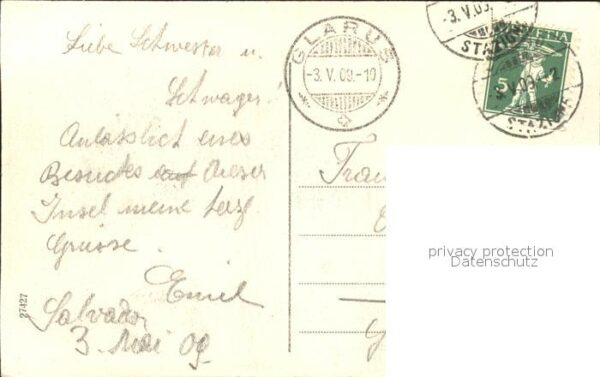 Liebe Schwester u.
Schwager!
Anlässlich eines
Besuches auf dieser
Insel meine herzl.
Grüsse.
Emil
Salvador
3. Mai 09
27427
GLARUS
-3.V.09.-10
-3.V.09.
STAZIONE
HELVETIA
5
V.09.-2
privacy protection
Datenschutz